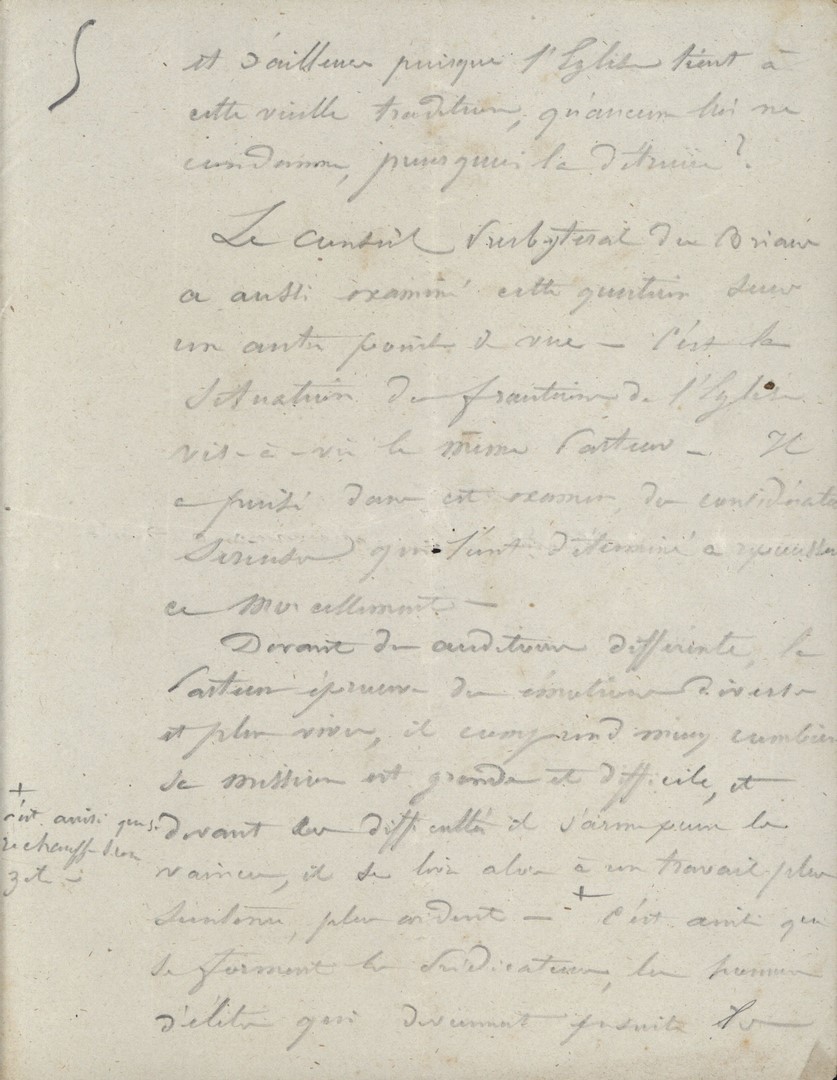 5
et d'ailleurs puisque l'Eglise tient à
cette vieille tradition, qu'aucune loi ne
condamne, pourquoi la détruire ?
Le Conseil Presbytéral de
a aussi examiné cette question sous
un autre point de vue – C'est la
situation de de l'Eglise
vis-à-vis le même Pasteur – Il
a puisé dans cet examen, des considérat
sérieuses qui l'ont déterminé a repousser
ce Morcellement –
Devant des auditoires différents, le
Pasteur éprouve des émotions diverses
et plus vives, il comprend mieux combien
sa mission est grande et difficile, et
devant les difficultés il s'arme pour les
vaincre, il se livre alors à un travail plus
soutenu, plus ardent – + C'est ainsi que
se forment les Prédicateurs, les hommes
d'élite qui deviennent ensuite
+
c'est ainsi que se
réchauffe son
zèle –